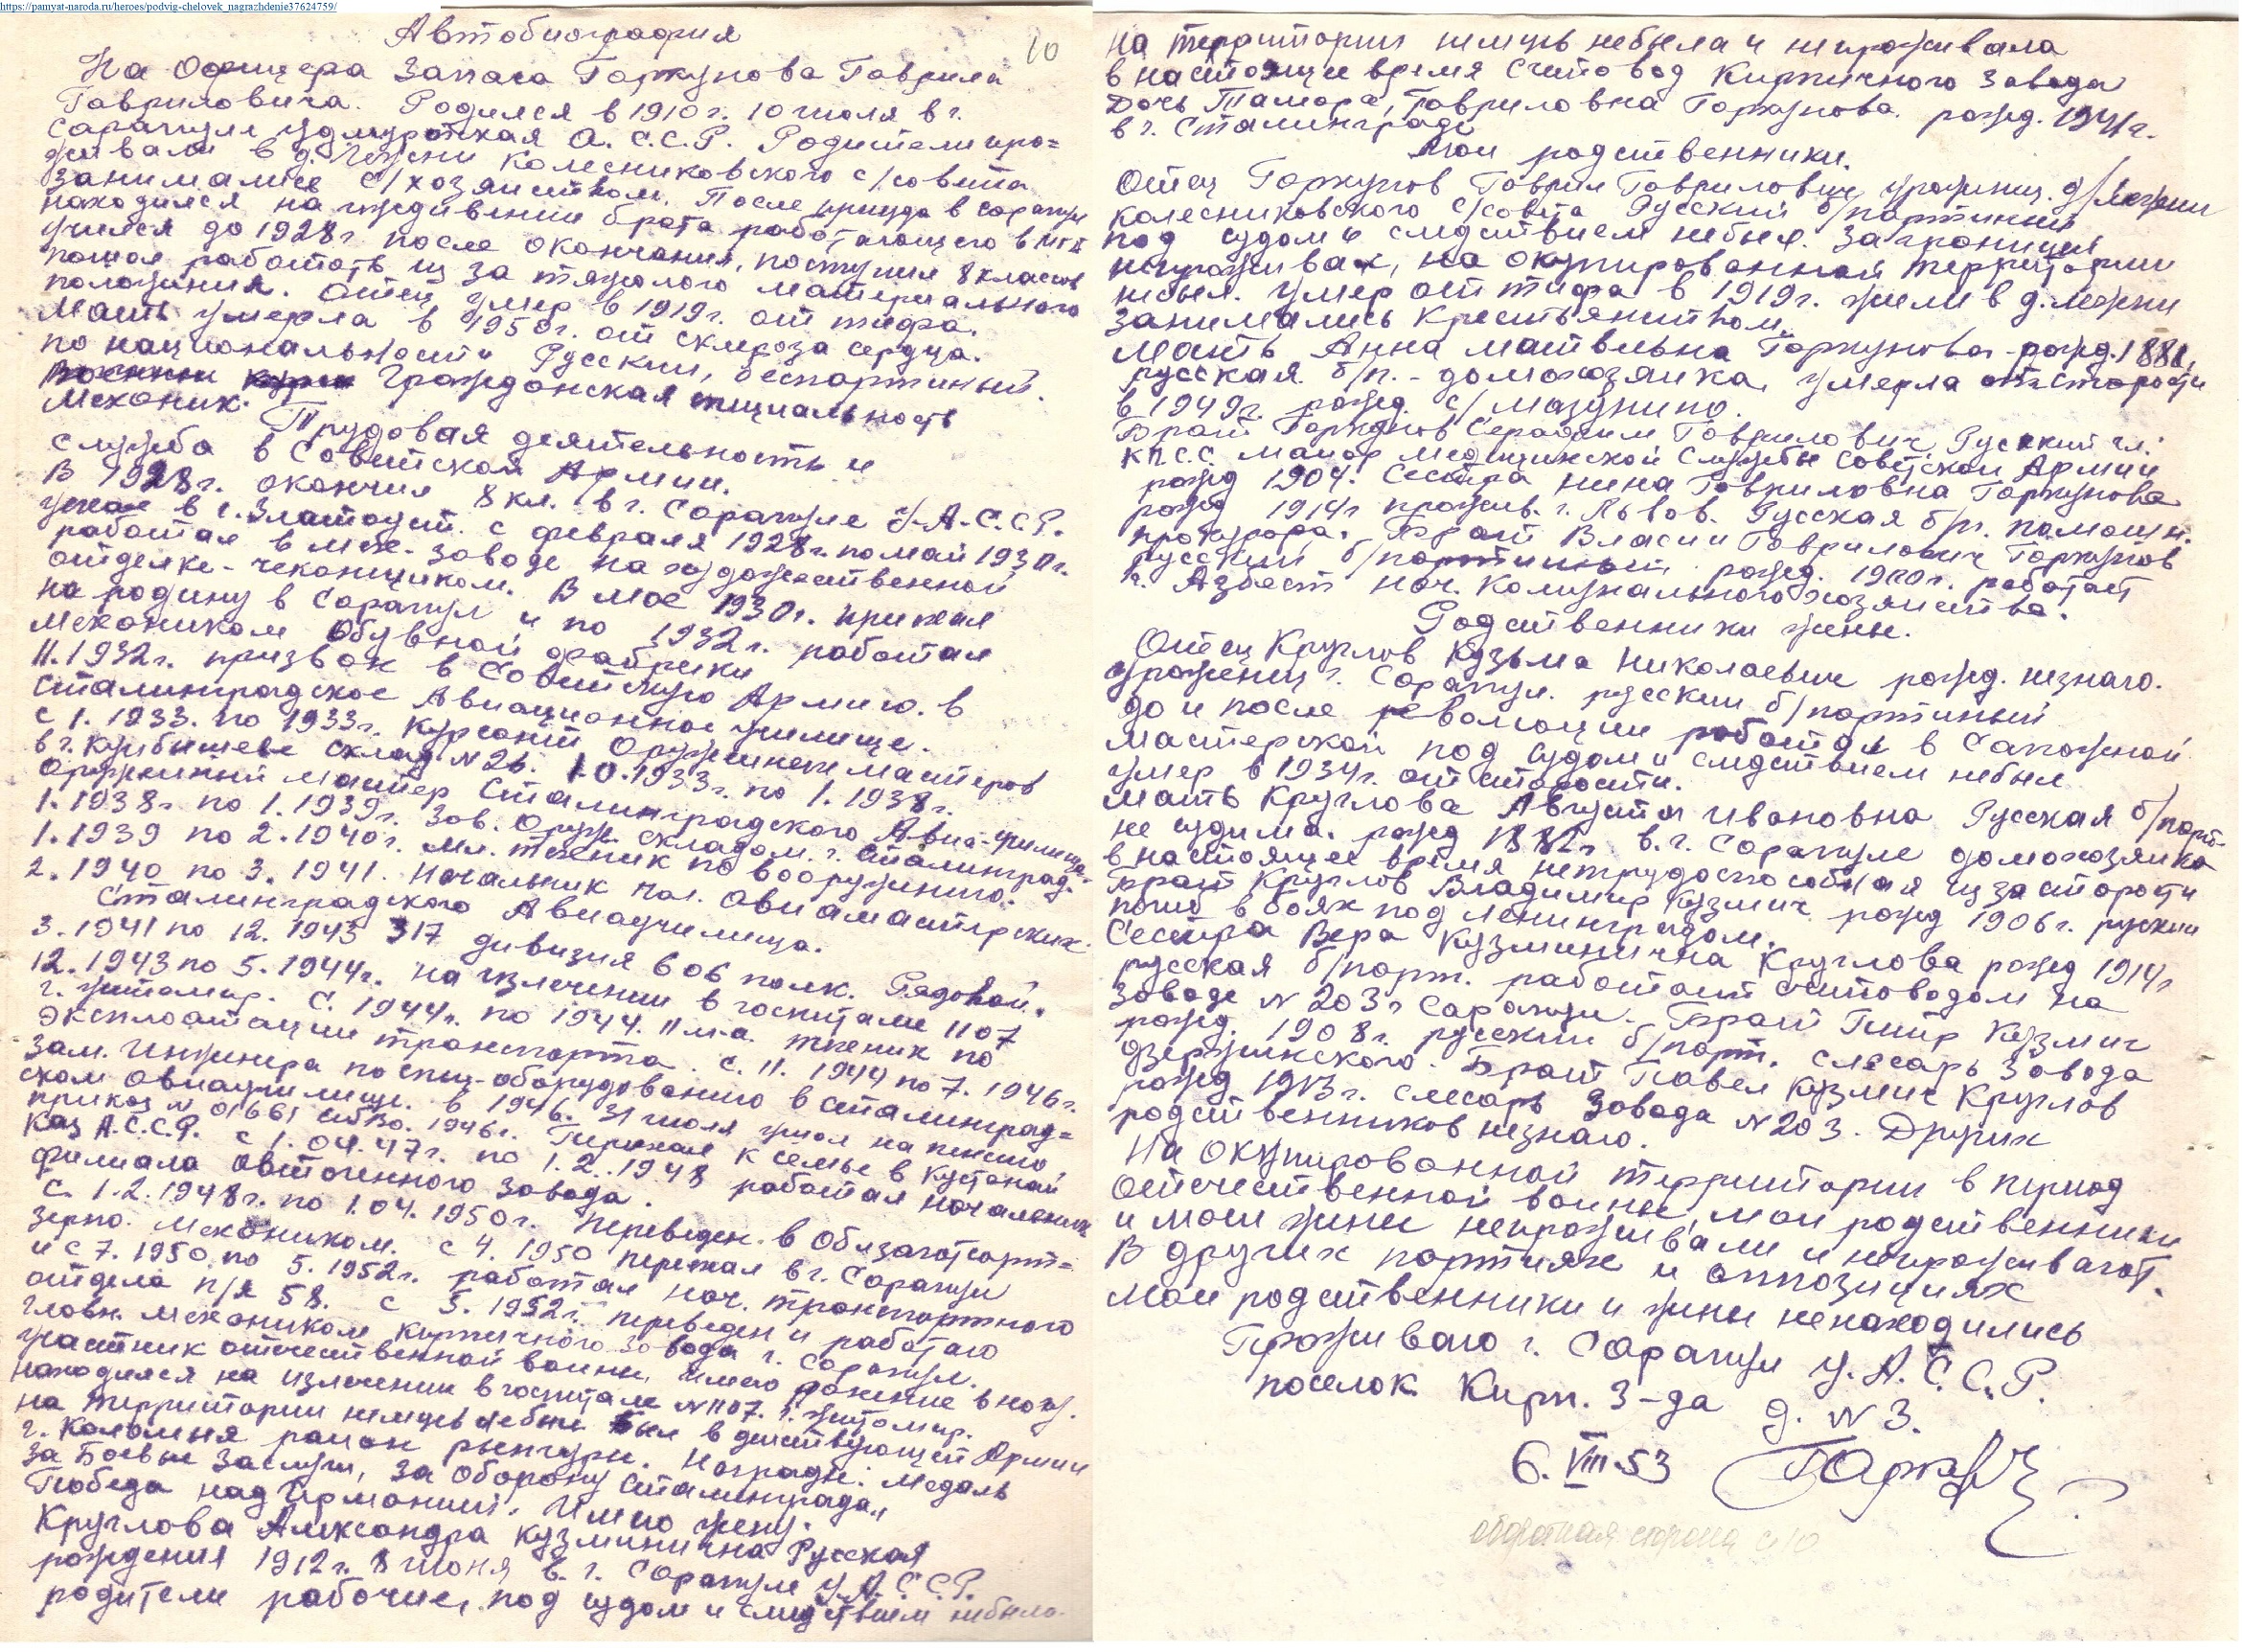 https://pamyat-naroda.ru/heroes/podvig-chelovek_nagrazhdenie37624759/
Автобиография
10
На Офицера Запаса Горкунова Гаврила
Гавриловича. Родился в 1910 г. 10 июля в г.
Сарапуле Удмуртская А.С.С.Р. Родители про=
живали в д. Межни Колесниковского с/совета
занимались с/хозяйством. После приезда в Сарапул
находился на иждивении брата работающего в
учился до 1928 г. после окончания, поступил 8 классов
пошол работать из за тяжолого материального
положения. Отец умер в 1919 г. от тифа.
Мать умерла в 1950 г. от склероза сердца.
по национальности Русский, беспартийный.
Гражданская специальность
Механик.
Трудовая деятельность и
служба в Советской Армии.
В 1928 г. окончил 8 кл. в г. Сарапуле У.А.С.С.Р.
уехал в г. Златоуст. с февраля 1928 г. по май 1930 г.
работал в мех. заводе на художественной
отделке - чеканщиком. В мае 1930 г. приехал
на родину в Сарапул и по 1932 г. работал
механиком Обувной фабрики
11.1932 г. призван в Советскую Армию. в
Сталинградское Авиационное училище.
с 1.1933. по 1933 г. курсант Оружейных мастеров
в г. Куйбышеве склад № 26. 10.1933 г. по 1.1938 г.
Оружейный мастер Сталинградского Авиа-училища.
1.1938 г. по 1.1939 г. Зав. Оруж. складом. г. Сталинград.
1.1939 по 2.1940 г. мл. техник по вооружению.
2.1940 по 3.1941. Начальник авиамастерских
Сталинградского Авиаучилища.
3.1941 по 12.1943 317 дивизия 606 полк. Рядовой.
12.1943 по 5.1944 г. на излечении в госпитале 1107
г. Житомир. С. 1944 г. по 1944. 11 м-а. техник по
эксплоатации транспорта. с. 11. 1944 по 7. 1946 г.
зам. Инженера по спец-оборудованию в Сталинград=
ском Авиаучилище. в 1946. 31 июля ушол на пенсию,
приказ № 01661 1946 г. Переехал к семье в Кустанай
Каз А.С.С.Р. с 1.04.47 г. по 1.2.1948 работал начальник
филиала овтогенного завода.
с. 1.2.1948 г. по 1.04.1950 г. переведен в Облзаготсорт=
зерно. Механиком. с 4. 1950 переехал в г. Сарапул
и с 7. 1950. по 5. 1952 г. работал нач. транспортного
отдела п/я 58. с 5. 1952 г. переведен и работаю
главн. механиком кирпичного завода г. Сарапул.
участник отечественной войны, имею ранение в ногу.
находился на излечении в госпитале № 1107. г. Житомир.
на территории немцев небыл был в действующей Армии
г. Коломыя район рынтури. Награды: Медаль
За Боевые Заслуги, За Оборону Сталинграда,,
Победа над Германией. Имею жену.
Круглова Александра Кузминична Русская
рождения 1912 г. 8 июня в. г. Сарапуле У.А.С.С.Р.
родители рабочие, под судом и следствием небыла.
на территории немцев небыла и непроживала
в настоящее время Счетовод Кирпичного Завода
Дочь Тамара, Гавриловна Горкунова. рожд. 1941 г.
в г. Сталинграде
Мои родственники.
Отец Горкунов Гаврил Гаврилович уроженец д/Межни
Колесниковского с/совета Русский б/партийный
под судом и следствием небыл. За границей
непроживал, на окупированной территории
небыл. умер от тифа в 1919 г. жили в д. Межни
занимались крестьянитвом.
Мать Анна Матвеевна Горкунова рожд. 1881,
русская б/п. - домохозяйка, умерла от старости
в 1949 г. рожд. с/ Мазунино.
Брат Горкунов Серафим Гаврилович, Русский чл.
КПСС. Майор медицинской Службы Советской Армии
рожд 1904. Сестра Нина Гавриловна Горкунова
рожд 1914 г прожив. г. Львов. Русская б/п. помощн.
прокурора. Брат Власии Гаврилович Горкунов
русский б/партийный рожд. 1900 г. работает
г. Азбест нач. Комунального хозяйства.
Родственники жены.
Отец Круглов Кузьма Николаевич рожд. незнаю.
уроженец г. Сарапул. русский б/партийный
до и после революции работал в Сапожной
мастерской под судом и следствием небыл
умер в 1934 г. от старости.
Мать Круглова Августа Ивановна Русская б/парт.
не судима. рожд 1882 г в. г. Сарапуле домохозяйка
в настоящее время нетрудоспособная из за старости
Брат Круглов Владимир Кузмич рожд 1906 г. русский
погиб в боях под Ленинградом.
Сестра Вера Кузминична Круглова рожд 1914 г
русская б/парт. работает счетоводом на
заводе № 203 г Сарапул. Брат Пётр Кузмич
рожд. 1908 г. русский б/парт. слесарь завода
дзержинского. Брат Павел Кузмич Круглов
рожд 1913 г. слесарь завода № 203. Других
родственников незнаю.
На окупированной территории в период
отечественной войны, мои родственники
и моей жены непроживали и непроживают.
В других партиях и оппозициях
мои родственники и жены ненаходились
Проживаю г. Сарапул У.А.С.С.Р.
поселок Кирп. З-да д. № 3.
6.VIII.53 Горкун
обратная сторона с. 10